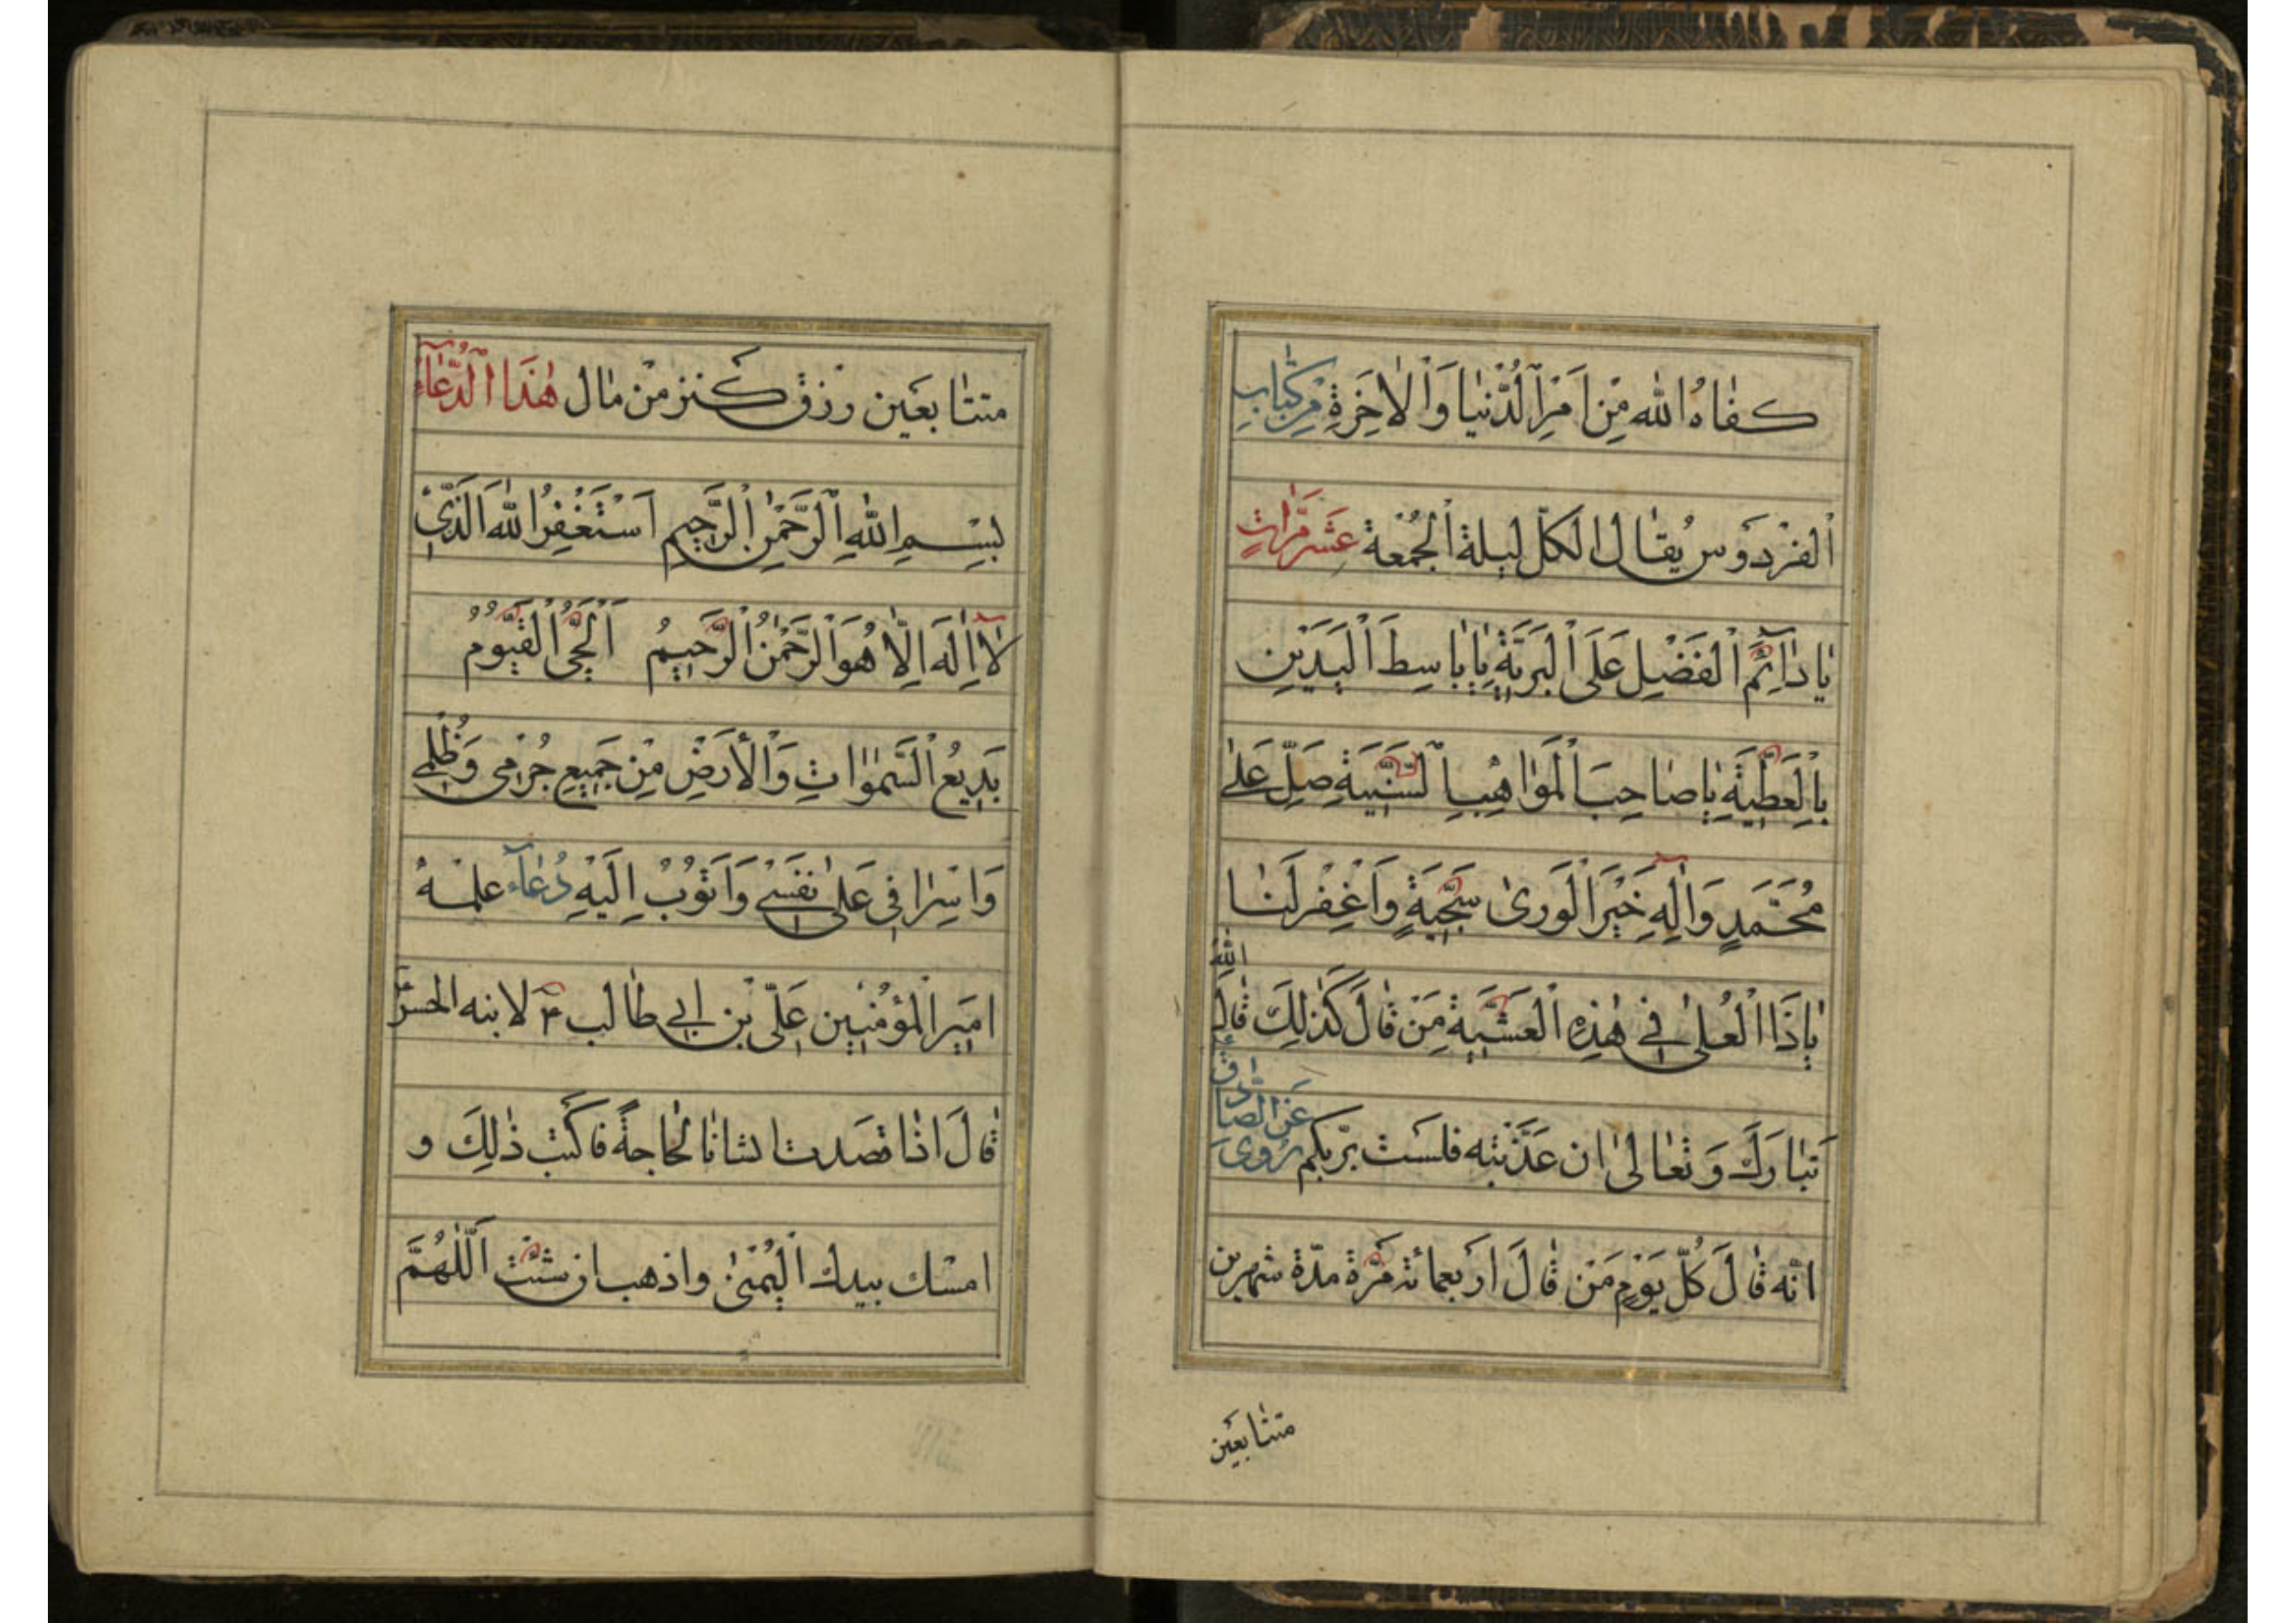 كفٰاهُ الله مِنْ اَمْرِ الدُّنْيٰا وَالْاٰخِرَةِ مِنْ كِتٰابِ
الْفِرْدَوس يُقٰال لكلّ ليلة الْجُمْعَة عَشَر مَرّاتٍ
يٰا دٰائِمَ الْفَضْلِ عَلَى الْبَرِيَّةِ يٰا بٰاسِطَ الْيَدَيْنِ
بِالْعَطِيَّةِ يٰا صٰاحِبَ الْمَوٰاهِبِ السَّنِيَّةِ صَلِّ عَلٰى
مُحَمَّدٍ وَاٰلِهِ خَيْرِ الْوَرىٰ سَجِيَّةٍ وَاغْفِرْ لَنٰا
يٰا ذَا الْعُلىٰ فِي هٰذِهِ الْعَشِيَّةِ مَنْ قٰالَ كَذٰلِكَ قٰالَ الله
تَبٰارَكَ وَ تَعٰالىٰ ان عَذَّبْته فلسَت بربّكم رُوِىَ عَنِ الصّادق
انّه قٰالَ كُلّ يَوْمٍ مَنْ قٰالَ اربعمائة مَرَّة مدّة شهرين
متتٰابعَين
متتٰابعَين رزق كَنز مِنْ مٰال هٰذَا الدُّعٰآءُ
بِسْمِ اللهِ الرَّحْمٰنِ الرَّحِيمِ اَسْتَغْفِرُ اللهَ الَّذِي
لآ اِلٰهَ اِلّٰا هُوَ الرَّحْمٰنُ الرَّحِيمُ اَلْحَيُّ الْقَيُّومُ
بَدِيعُ السَّمٰوٰاتِ وَالْأَرْضِ مِنْ جَمِيعِ جُرْمِي وَظُلْمِي
وَاِسْرٰافِي عَلىٰ نَفْسِي وَاَتُوبُ اِلَيْهِ دُعٰآء علمهُ
اميَر الْمؤمنين عَلِيّ بْن ابي طٰالب ع لابنه الحسن
قٰالَ اذٰا قصَدت انسٰانًا لحٰاجةً فاكتب ذٰلِكَ و
امسْك بيدك الْيُمْنىٰ واذهب اين شئت اَللّٰهُمَّ